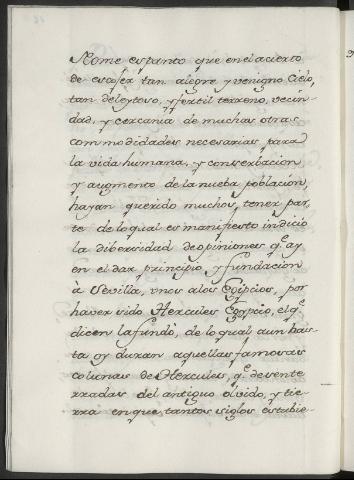 No me espanto que en el acierto
de escojer tan alegre y venigno Cielo,
tan deleytoso, y fertil terreno, vecin-
dad, y cercania de muchas otras
commodidades necesarias para
la vida humana, y conserbacion
y augmento de la nueba poblacion,
hayan querido muchos tener par-
te de lo qual es manifiesto indicio
la dibersidad de opiniones q.e ay
en el dar principio y fundacion
à Sevilla, unos a los Egipcios, por
haver sido Hercules Egypcio, el q.e
dicen la fundò, de lo qual aun has-
ta oy duran aquellas famosas
colunas de Hercules, q.e desente
rradas del antiguo olvido, y tie-
rra en que tantos siglos estubie-